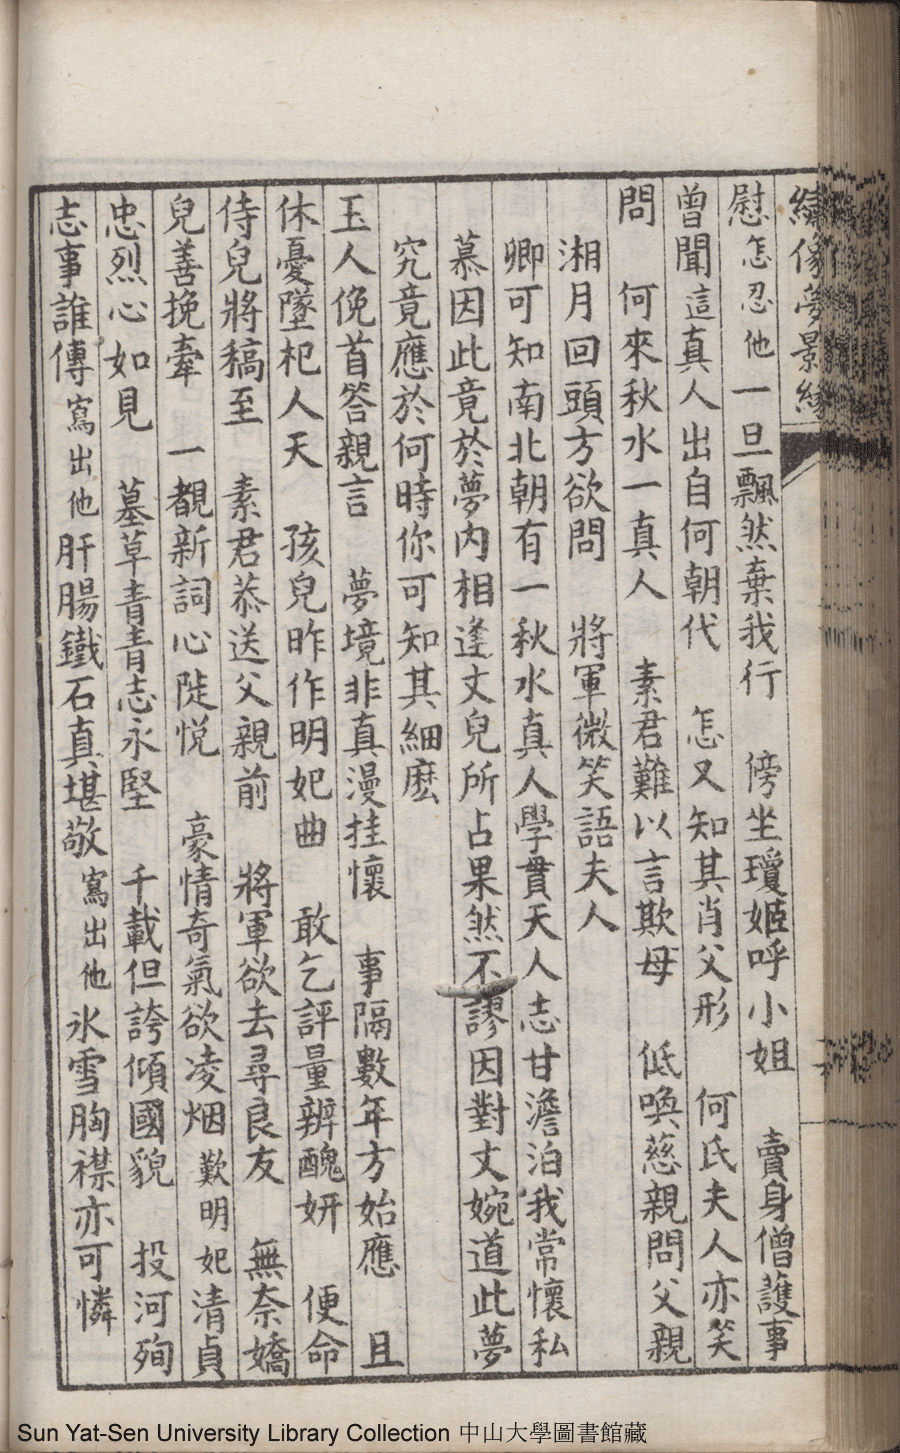 繡像夢景緣
慰怎忍他一旦飄然棄我行　傍坐瓊姬呼小姐　賣身僧護事
曾聞這真人出自何朝代　怎又知其肖父形　何氏夫人亦笑
問　何來秋水一真人　素君難以言欺母　低喚慈親問父親
湘月回頭方欲問　將軍微笑語夫人
卿可知南北朝有一秋水真人學貫天人志甘澹泊我常懷私
慕因此竟於夢內相逢丈兒所占果然不謬因對丈婉道此夢
究竟應於何時你可知其細麽
玉人俛首答親言　夢境非真漫挂懷　事隔數年方始應　且
休憂墜杞人天　孩兒昨作明妃曲　敢乞評量辨醜妍　便命
侍兒將稿至　素君恭送父親前　將軍欲去尋良友　無奈嬌
兒善挽牽　一覩新詞心陡悅　豪情奇氣欲凌烟　歎明妃清貞
忠烈心如見　墓草青青志永堅　千載但誇傾國貌　投河殉
志事誰傳寫出他肝腸鐵石真堪敬寫出他氷雪胸襟亦可憐
Sun Yat-Sen University Library Collection 中山大學圖書館藏